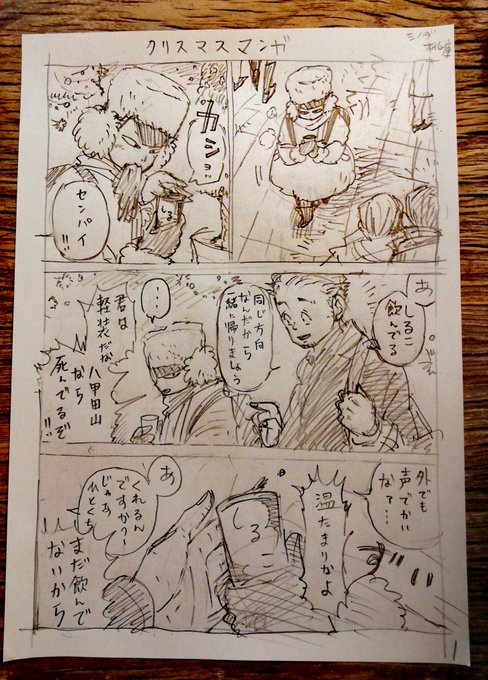 クリスマスマンガ
シノダ
カショ
しるこ
センパイ!!
あ
しるこ
飲んでる
同じ方向
なんだから
一緒に帰りましょう
…
君は
軽装だな
八甲田山
なら
死んでるぞ!!
外でも
声でかい
なァ…
温たまりかよ
しるこ
あ
くれるん
ですか?
じゃあ
ひとくち
まだ飲んで
ないから
1